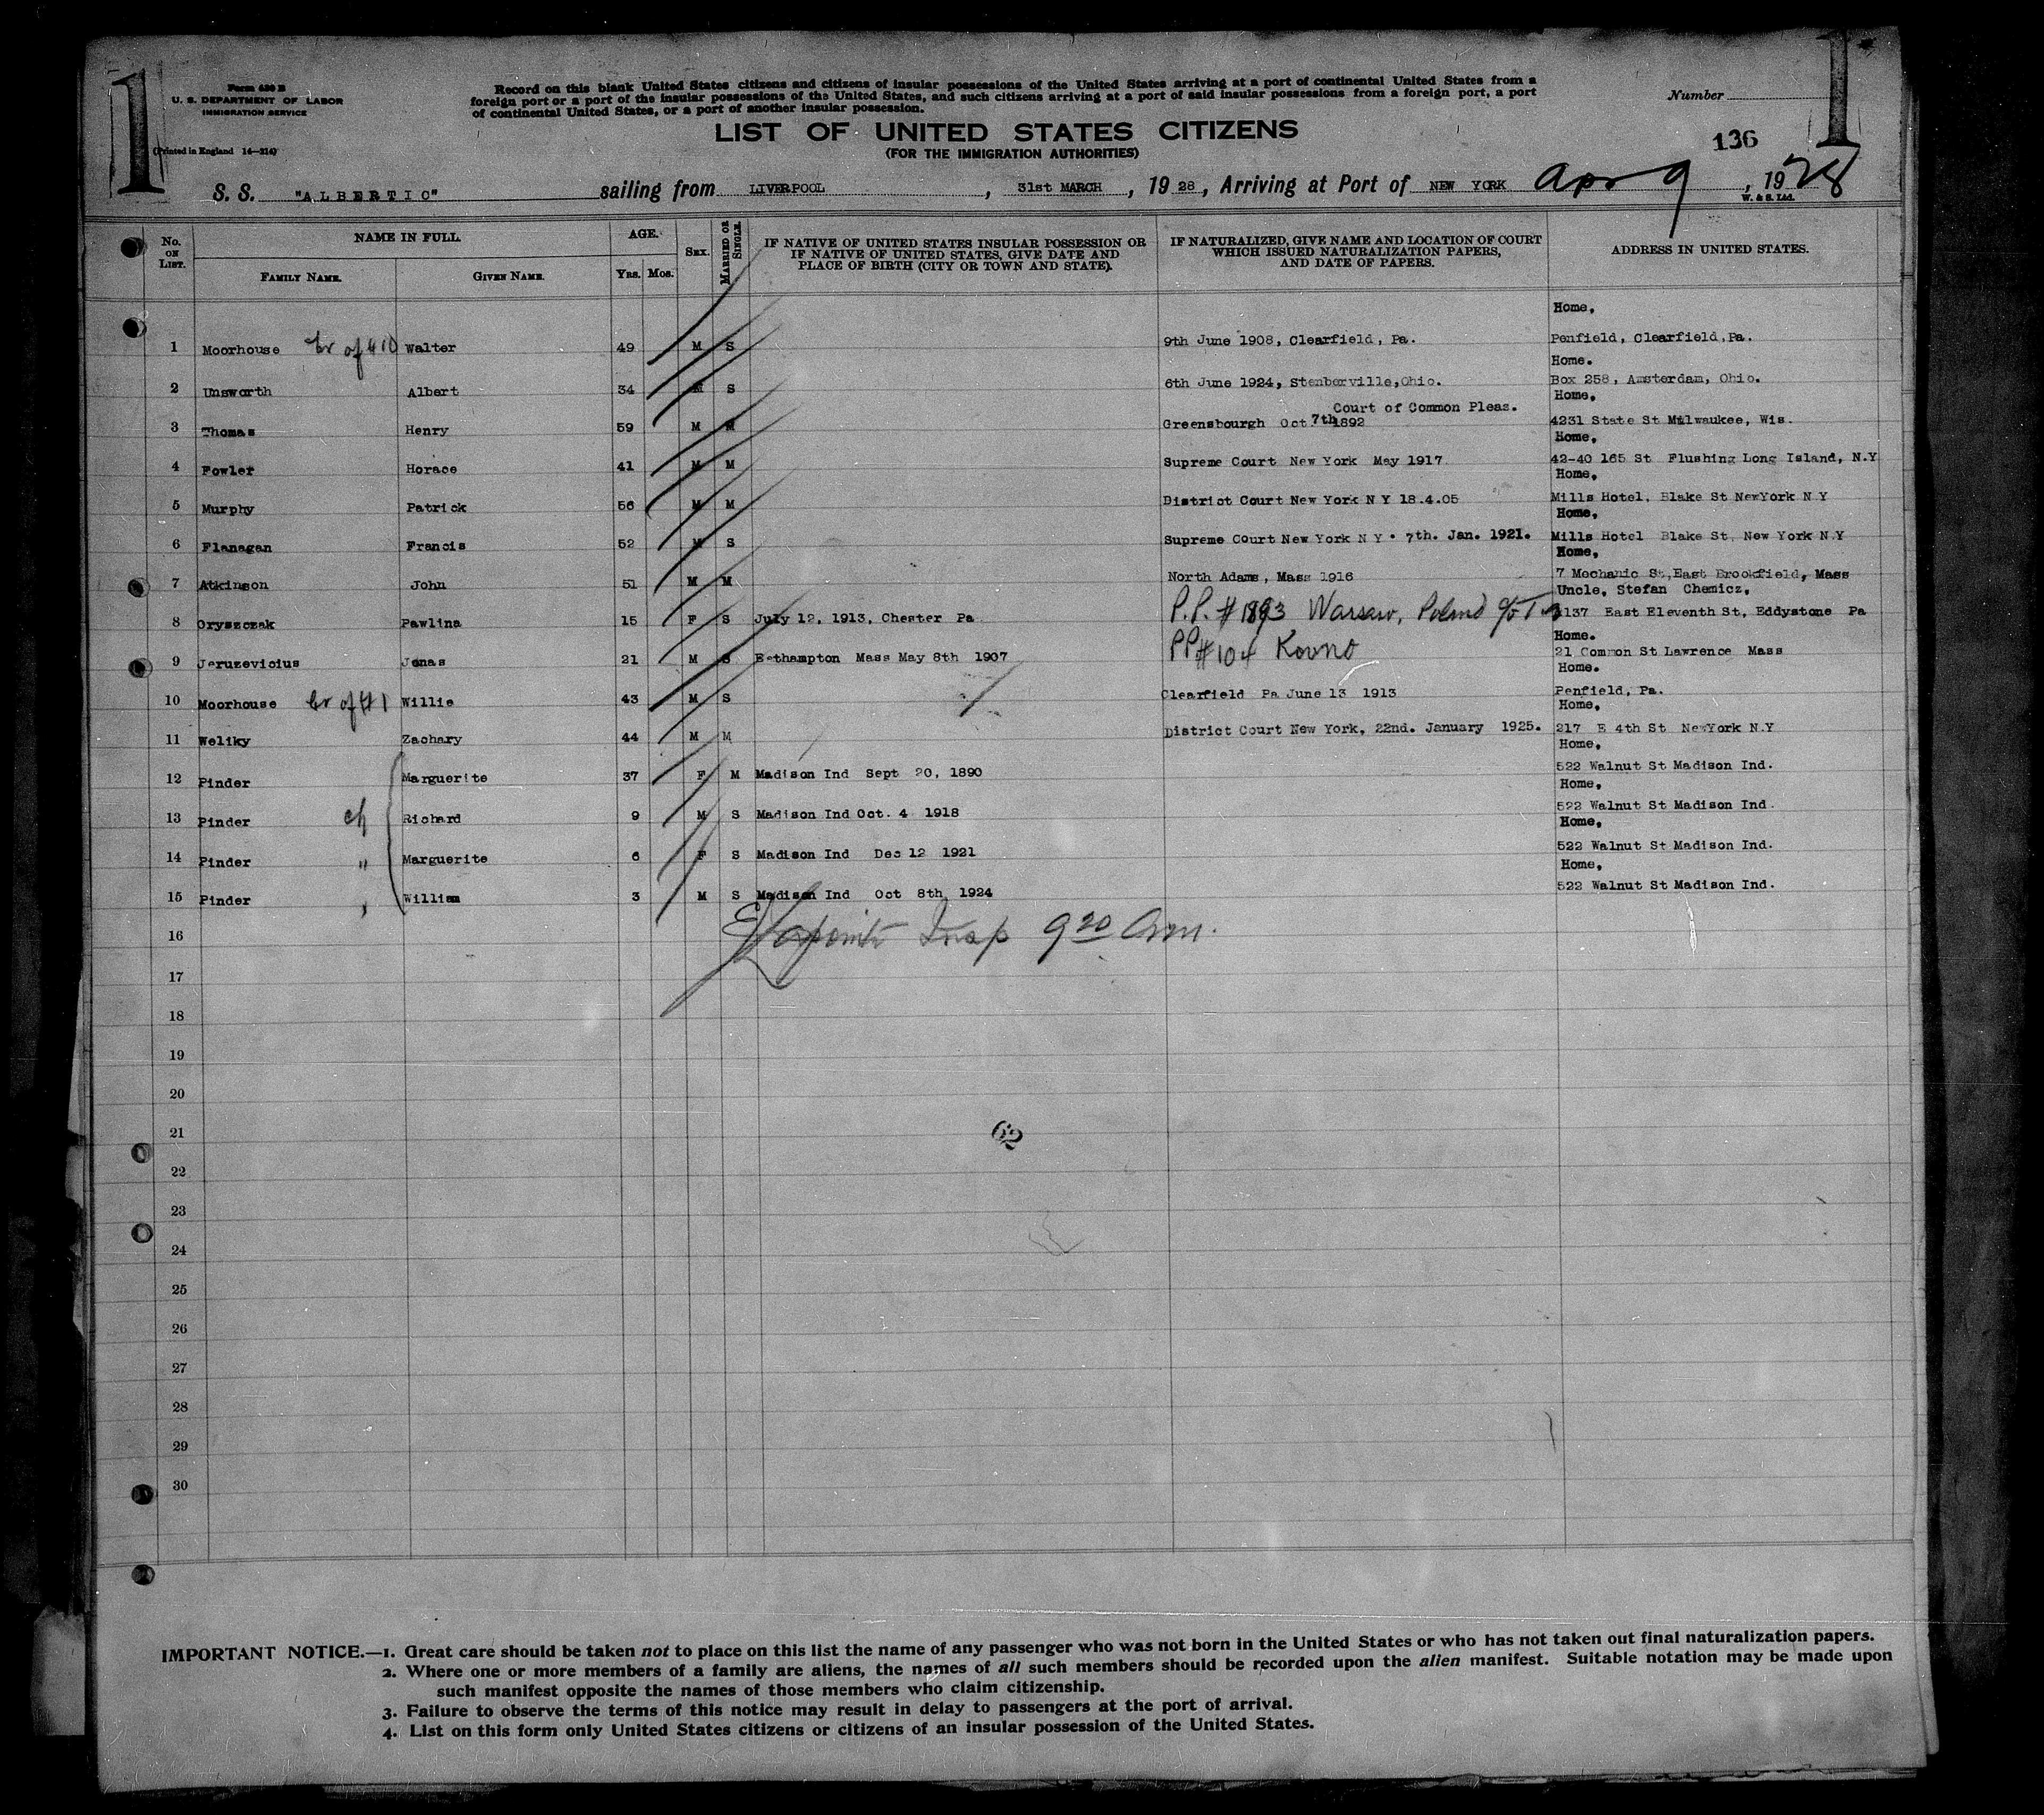 1
Form 630 B
U. S. DEPARTMENT OF LABOR
IMMIGRATION SERVICE
(Printed in England 14—214)
Record on this blank United States citizens and citizens of insular possessions of the United States arriving at a port of continental United States from a
foreign port or a port of the insular possessions of the United States, and such citizens arriving at a port of said insular possessions from a foreign port, a port
of continental United States, or a port of another insular possession.
Number
1
LIST OF UNITED STATES CITIZENS
(FOR THE IMMIGRATION AUTHORITIES)
136
S. S. "ALBERTIC" sailing from LIVERPOOL, 31st MARCH, 19 28, Arriving at Port of NEW YORK Apr 9, 1928
W. & S. Ltd.
No. ON LIST. NAME IN FULL. AGE. SEX. MARRIED OR SINGLE. IF NATIVE OF UNITED STATES INSULAR POSSESSION OR IF NATIVE OF UNITED STATES, GIVE DATE AND PLACE OF BIRTH (CITY OR TOWN AND STATE). IF NATURALIZED, GIVE NAME AND LOCATION OF COURT WHICH ISSUED NATURALIZATION PAPERS, AND DATE OF PAPERS. ADDRESS IN UNITED STATES.
FAMILY NAME. GIVEN NAME. YRS. MOS.
Home,
1 Moorhouse br of #10 Walter 49 M S 9th June 1908, Clearfield, Pa. Penfield, Clearfield, Pa.
Home.
2 Unsworth Albert 34 M S 6th June 1924, Stenberville, Ohio. Box 258, Amsterdam, Ohio.
Home,
Court of Common Pleas.
3 Thomas Henry 59 M M Greensbourgh Oct 7th 1892 4231 State St Milwaukee, Wis.
Home,
4 Fowler Horace 41 M M Supreme Court New York May 1917 42-40 165 St Flushing Long Island, N.Y
Home,
5 Murphy Patrick 56 M M District Court New York N Y 18.4.05 Mills Hotel, Blake St NewYork N Y
Home,
6 Flanagan Francis 52 M S Supreme Court New York N Y . 7th. Jan. 1921. Mills Hotel Blake St, New York N.Y
Home,
7 Atkinson John 51 M M North Adams, Mass 1916 7 Mechanic St, East Brookfield, Mass
Uncle, Stefan Chemicz,
8 Oryszczak Pawlina 15 F S July 12, 1913, Chester Pa P.P. #1893 Warsaw, Poland 1137 East Eleventh St, Eddystone Pa
Home.
9 Jeruzevicius Jonas 21 M S Eethampton Mass May 8th 1907 PP#104 Kovno 21 Common St Lawrence Mass
Home.
10 Moorhouse br of #1 Willie 43 M S Clearfield Pa June 13 1913 Penfield, Pa.
Home,
11 Weliky Zachary 44 M M District Court New York, 22nd. January 1925. 217 E 4th St NewYork N.Y
Home,
12 Pinder Marguerite 37 F M Madison Ind Sept 20, 1890 522 Walnut St Madison Ind.
Home,
13 Pinder ch Richard 9 M S Madison Ind Oct. 4 1918 522 Walnut St Madison Ind.
Home,
14 Pinder " Marguerite 6 F S Madison Ind Dec 12 1921 522 Walnut St Madison Ind.
Home,
15 Pinder William 3 M S Madison Ind Oct 8th 1924 522 Walnut St Madison Ind.
16 Insp 9 20 Am.
17
18
19
20
21
62
22
23
24
25
26
27
28
29
30
IMPORTANT NOTICE.—1. Great care should be taken not to place on this list the name of any passenger who was not born in the United States or who has not taken out final naturalization papers.
2. Where one or more members of a family are aliens, the names of all such members should be recorded upon the alien manifest. Suitable notation may be made upon
such manifest opposite the names of those members who claim citizenship.
3. Failure to observe the terms of this notice may result in delay to passengers at the port of arrival.
4. List on this form only United States citizens or citizens of an insular possession of the United States.